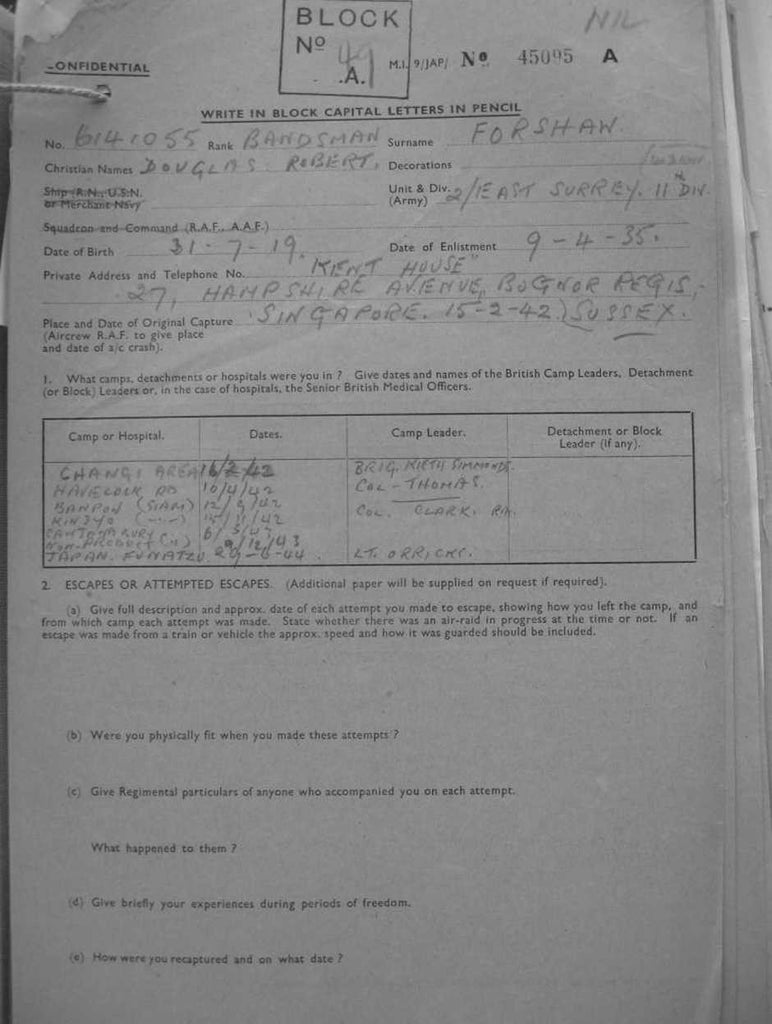 BLOCK
Nº 49
.A.
NIL
CONFIDENTIAL
M.I. 9/JAP/ Nº 45095 A
WRITE IN BLOCK CAPITAL LETTERS IN PENCIL
No. 6141055 Rank BANDSMAN Surname FORSHAW.
Christian Names DOUGLAS ROBERT, Decorations
Ship (R.N., U.S.N. or Merchant Navy
Unit & Div. (Army) 2/EAST SURREY. 11th DIV.
Squadron and Command (R.A.F., A.A.F.)
Date of Birth 31-7-19. Date of Enlistment 9-4-35.
Private Address and Telephone No. "KENT HOUSE"
27, HAMPSHIRE AVENUE, BOGNOR REGIS,
Place and Date of Original Capture SINGAPORE. 15-2-42) SUSSEX.
(Aircrew R.A.F. to give place
and date of a/c crash).
1. What camps, detachments or hospitals were you in ? Give dates and names of the British Camp Leaders, Detachment
(or Block) Leaders or, in the case of hospitals, the Senior British Medical Officers.
Camp or Hospital. Dates. Camp Leader. Detachment or Block Leader (if any).
CHANGI AREA 16/2/42 BRIG. SIMMONDS.
HAVELOCK RD 10/4/42 COL - THOMAS.
BANPON (SIAM) 12/9/42
KINSYO 15/11/42 COL. CLARK. RA.
6/3/43
9/12/43
JAPAN. FUNATZU. 29-6-44. LT. ORRICKS.
2. ESCAPES OR ATTEMPTED ESCAPES. (Additional paper will be supplied on request if required).
(a) Give full description and approx. date of each attempt you made to escape, showing how you left the camp, and
from which camp each attempt was made. State whether there was an air-raid in progress at the time or not. If an
escape was made from a train or vehicle the approx. speed and how it was guarded should be included.
(b) Were you physically fit when you made these attempts ?
(c) Give Regimental particulars of anyone who accompanied you on each attempt.
What happened to them ?
(d) Give briefly your experiences during periods of freedom.
(e) How were you recaptured and on what date ?